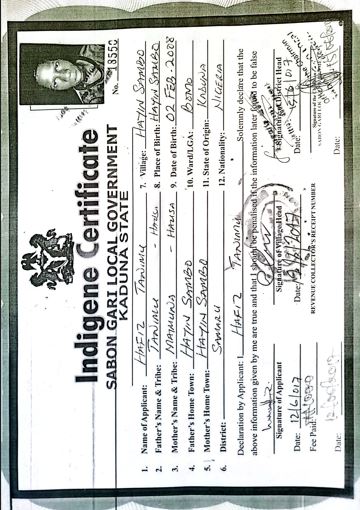 No. 18550
Indigene Certificate
SABON GARI LOCAL GOVERNMENT
KADUNA STATE
1. Name of Applicant: HAFIZ TANIMU
7. Village: HAYIN SAMBO
2. Father's Name & Tribe: TANIMU - HAUSA
8. Place of Birth: HAYIN SAMBO
3. Mother's Name & Tribe: MAIMUNA - HAUSA
9. Date of Birth: 02 FEB. 2008
4. Father's Home Town: HAYIN SAMBO
10. Ward/LGA: BOMO
5. Mother's Home Town: HAYIN SAMBO
11. State of Origin: KADUNA
6. District: SAMARU
12. Nationality: NIGERIA
Declaration by Applicant: I HAFIZ TANIMU Solemnly declare that the
above information given by me are true and that I should be penalised if the information later found to be false
Signature of Applicant
Signature of Village Head
Signature of District Head
Date: 12/6/017
Date:
Date:
Fee Paid:
REVENUE COLLECTOR'S RECEIPT NUMBER
Date: